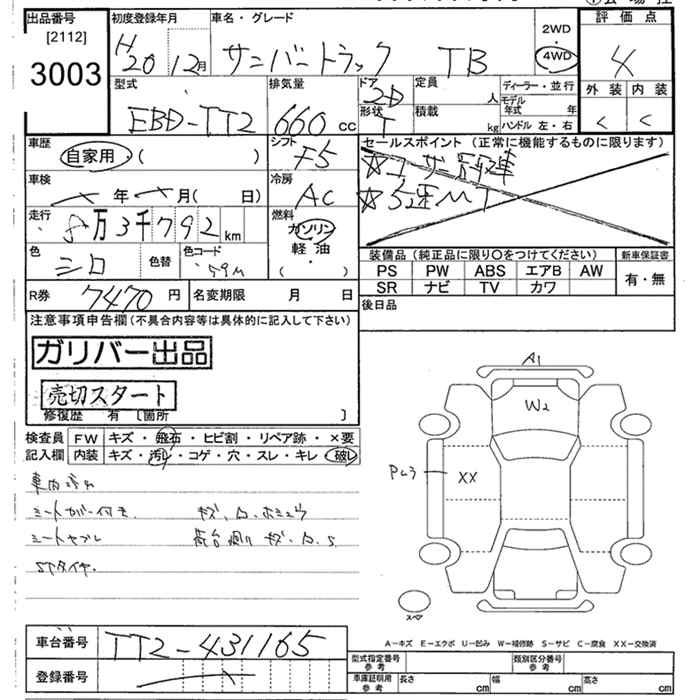 出品番号 [2112] 3003
初度登録年月 H20 12月
車名・グレード サンバートラック TB
2WD 4WD
評価点 4
外装 内装
C C
型式 EBD-TT2
排気量 660 cc
ドア 2D
形状 T
定員 人
積載 kg
ディーラー・並行
モデル年式 年
ハンドル 左・右
車歴 自家用・( )
シフト F5
車検 年 月( 日)
冷房 AC
走行 8万3千792km
燃料 ガソリン・軽油・( )
色 シロ 色替 色コード 59M
R券 7470円 名変期限 月 日
セールスポイント (正常に機能するものに限ります)
☆5速MT
装備品 (純正品に限り○をつけてください)
新車保証書
PS PW ABS エアB AW
SR ナビ TV カワ
有・無
後日品
注意事項申告欄(不具合内容等は具体的に記入して下さい)
ガリバー出品
売切スタート
修復歴 有 [箇所 ]
検査員 FW キズ・飛石・ヒビ割・リペア跡・×要
記入欄 内装 キズ・汚れ・コゲ・穴・スレ・キレ・破レ
車内汚れ
シートカバー付き キズ、A、
シートヤブレ 荷台回り キズ、A、S
STタイヤ.
A1
W2
XX
スペア
A-キズ E-エクボ U-凹み W-補修跡 S-サビ C-腐食 XX-交換済
車台番号 TT2-431165
登録番号
型式指定番号 参考
類別区分番号 参考
車庫証明用 参考 長さ cm 幅 cm 高さ cm